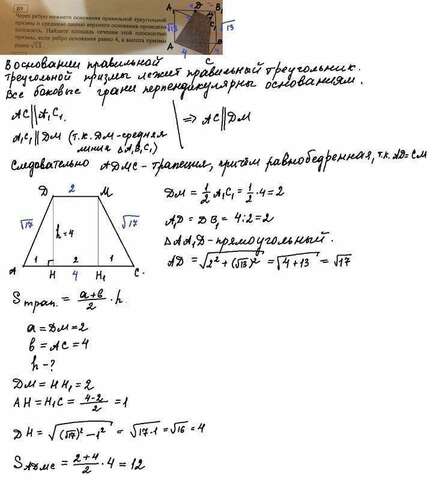 Через ребро нижнего основания правильной треугольной
призмы и середину верхнего основания проведена
плоскость. Найдите площадь сечения этой плоскостью
призмы, если ребро основания равно 4, а высота призмы
равна √13.
A₁ D B₁
M
C₁
√13 √13
A B
4 C
В основании правильной
треугольной призмы лежит правильный треугольник.
Все боковые грани перпендикулярны основаниям.
AC || A₁C₁
A₁C₁ || DM (т.к. DM-средняя
линия ΔA₁B₁C₁)
⇒ AC || DM
Следовательно ADMC - трапеция, причём равнобедренная, т.к. AD=CM
D 2 M
√17 h=4 √17
1 2 1
A H 4 H₁ C.
DM = 1/2 A₁C₁ = 1/2 · 4 = 2
A₁D = DB₁ = 4:2 = 2
ΔAA₁D - прямоугольный.
AD = √(2² + (√13)²) = √(4+13) = √17
Sтрап. = (a+b)/2 · h.
a = DM = 2
b = AC = 4
h - ?
DM = HH₁ = 2
AH = H₁C = (4-2)/2 = 1
DH = √((√17)² - 1²) = √(17-1) = √16 = 4
S ADMC = (2+4)/2 · 4 = 12